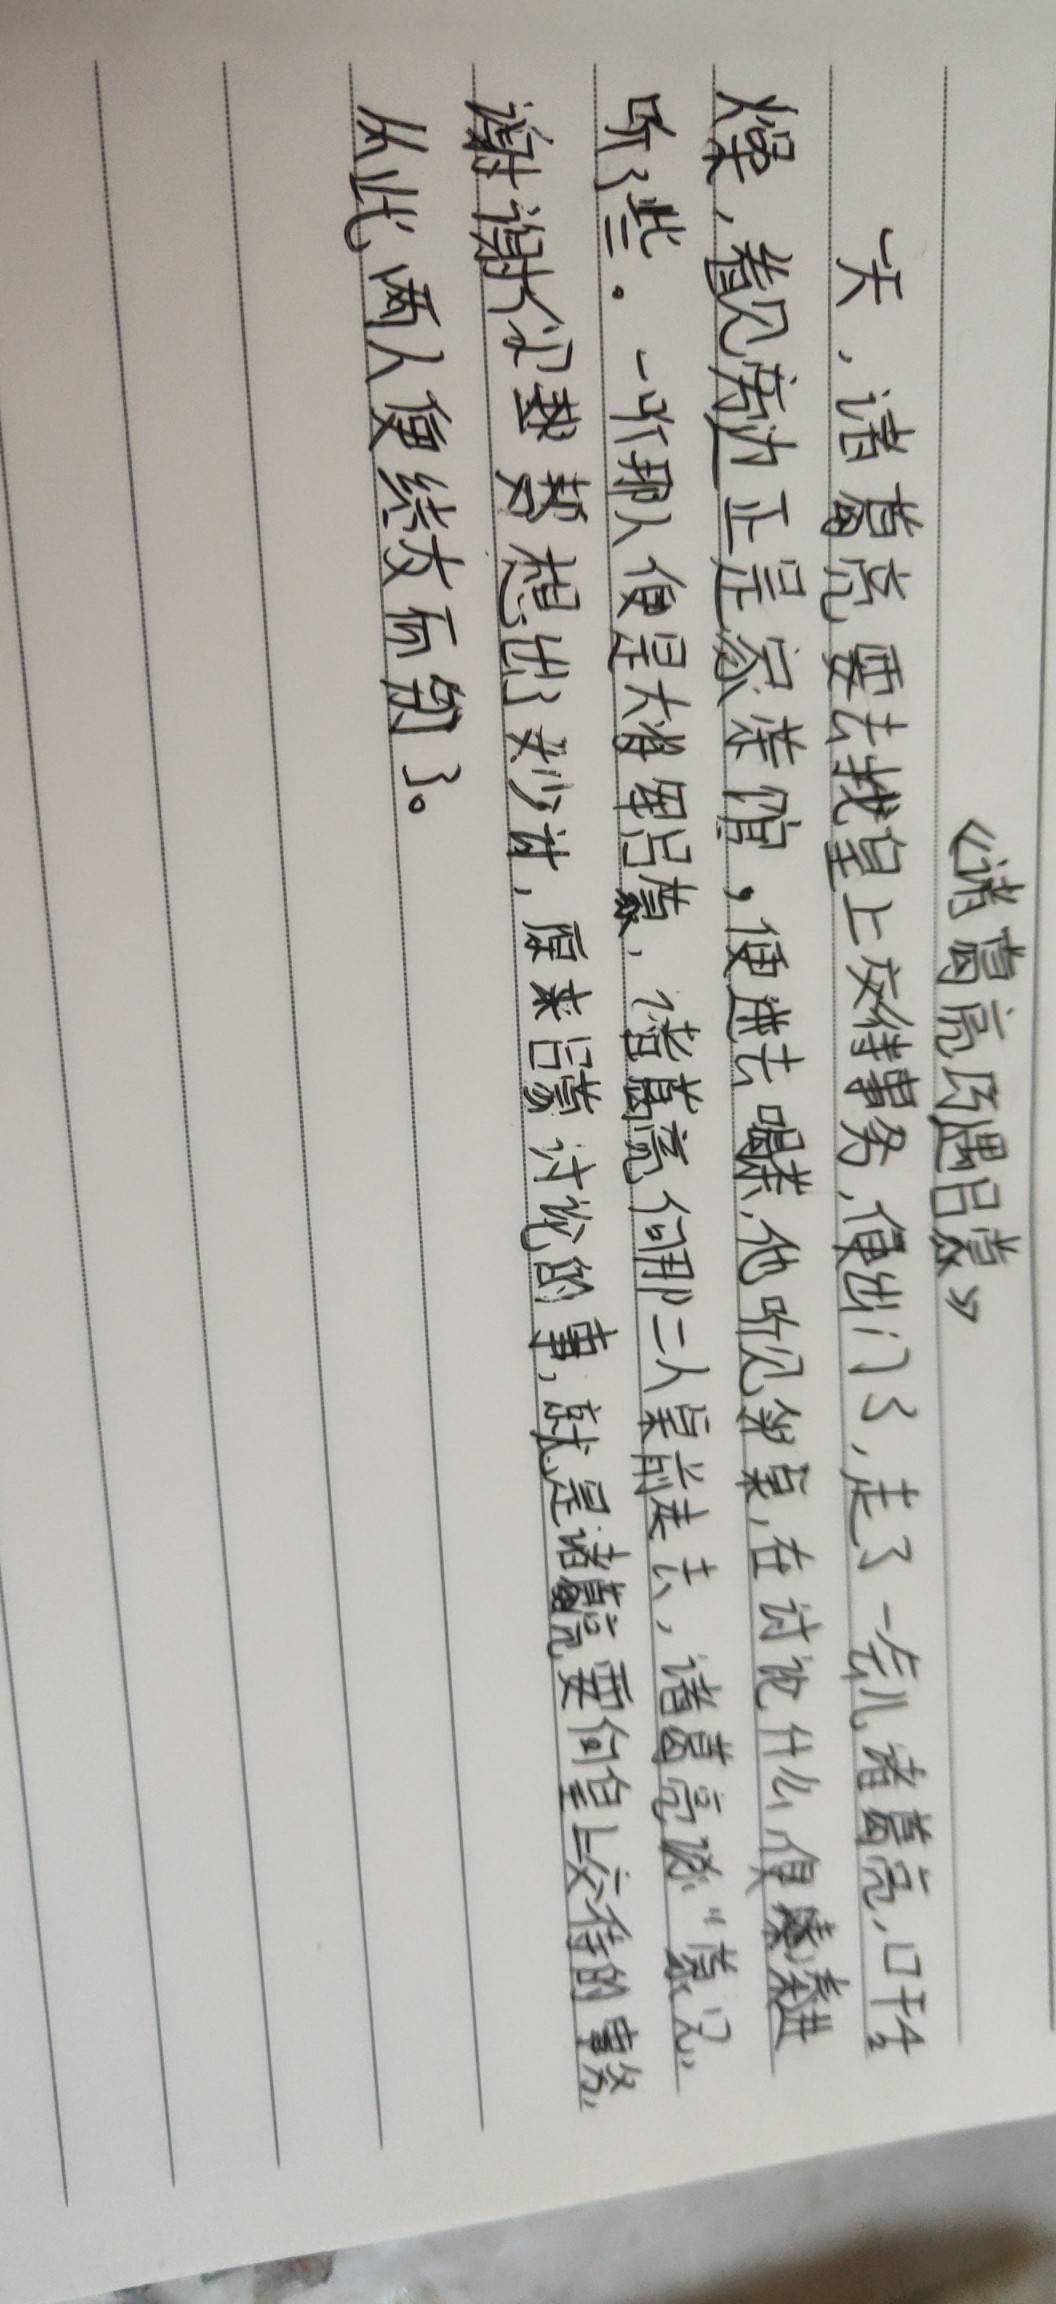 《诸葛亮巧遇吕蒙》
一天，诸葛亮要去找皇上交待事务，便出门了，走了一会儿，诸葛亮，口干
燥，看见旁边正是家茶馆，便进去喝茶，他听见坐桌，在讨论什么，便凑进
听了些。一听那人便是大将军吕蒙，诸葛亮向那二人桌前走去，诸葛亮说“蒙兄，
谢谢你整帮想出了妙计，原来吕蒙讨论的事，就是诸葛亮要向皇上交待的事务，
从此，两人便结友而别了。